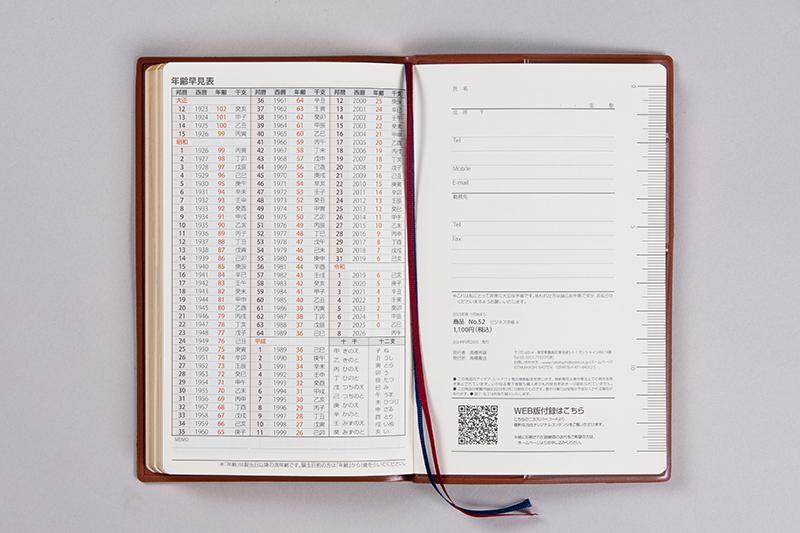 年齢早見表
邦暦 西暦 年齢 干支
大正
12 1923 102 癸亥
13 1924 101 甲子
14 1925 100 乙丑
15 1926 99 丙寅
昭和
1 1926 99 丙寅
2 1927 98 丁卯
3 1928 97 戊辰
4 1929 96 己巳
5 1930 95 庚午
6 1931 94 辛未
7 1932 93 壬申
8 1933 92 癸酉
9 1934 91 甲戌
10 1935 90 乙亥
11 1936 89 丙子
12 1937 88 丁丑
13 1938 87 戊寅
14 1939 86 己卯
15 1940 85 庚辰
16 1941 84 辛巳
17 1942 83 壬午
18 1943 82 癸未
19 1944 81 甲申
20 1945 80 乙酉
21 1946 79 丙戌
22 1947 78 丁亥
23 1948 77 戊子
24 1949 76 己丑
25 1950 75 庚寅
26 1951 74 辛卯
27 1952 73 壬辰
28 1953 72 癸巳
29 1954 71 甲午
30 1955 70 乙未
31 1956 69 丙申
32 1957 68 丁酉
33 1958 67 戊戌
34 1959 66 己亥
35 1960 65 庚子
邦暦 西暦 年齢 干支
36 1961 64 辛丑
37 1962 63 壬寅
38 1963 62 癸卯
39 1964 61 甲辰
40 1965 60 乙巳
41 1966 59 丙午
42 1967 58 丁未
43 1968 57 戊申
44 1969 56 己酉
45 1970 55 庚戌
46 1971 54 辛亥
47 1972 53 壬子
48 1973 52 癸丑
49 1974 51 甲寅
50 1975 50 乙卯
51 1976 49 丙辰
52 1977 48 丁巳
53 1978 47 戊午
54 1979 46 己未
55 1980 45 庚申
56 1981 44 辛酉
57 1982 43 壬戌
58 1983 42 癸亥
59 1984 41 甲子
60 1985 40 乙丑
61 1986 39 丙寅
62 1987 38 丁卯
63 1988 37 戊辰
64 1989 36 己巳
平成
1 1989 36 己巳
2 1990 35 庚午
3 1991 34 辛未
4 1992 33 壬申
5 1993 32 癸酉
6 1994 31 甲戌
7 1995 30 乙亥
8 1996 29 丙子
9 1997 28 丁丑
10 1998 27 戊寅
11 1999 26 己卯
邦暦 西暦 年齢 干支
12 2000 25 庚辰
13 2001 24 辛巳
14 2002 23 壬午
15 2003 22 癸未
16 2004 21 甲申
17 2005 20 乙酉
18 2006 19 丙戌
19 2007 18 丁亥
20 2008 17 戊子
21 2009 16 己丑
22 2010 15 庚寅
23 2011 14 辛卯
24 2012 13 壬辰
25 2013 12 癸巳
26 2014 11 甲午
27 2015 10 乙未
28 2016 9 丙申
29 2017 8 丁酉
30 2018 7 戊戌
31 2019 6 己亥
令和
1 2019 6 己亥
2 2020 5 庚子
3 2021 4 辛丑
4 2022 3 壬寅
5 2023 2 癸卯
6 2024 1 甲辰
7 2025 0 乙巳
8 2026 丙午
十干 十二支
甲 きのえ
乙 きのと
丙 ひのえ
丁 ひのと
戊 つちのえ
己 つちのと
庚 かのえ
辛 かのと
壬 みずのえ
癸 みずのと
子 ね
丑 うし
寅 とら
卯 う
辰 たつ
巳 み
午 うま
未 ひつじ
申 さる
酉 とり
戌 いぬ
亥 い
MEMO
※「年齢」は誕生日以降の満年齢です。誕生日前の方は「年齢」から1歳を引いてください。
氏 名
生 年
住 所 〒
Tel
Mobile
E-mail
勤務先
Tel
Fax
0
5
10
商品 No.52 ビジネス手帳 4
1,100円(税込)
2024年9月 発行
発行者 高橋秀雄
発行所 高橋書店
WEB版付録はこちら